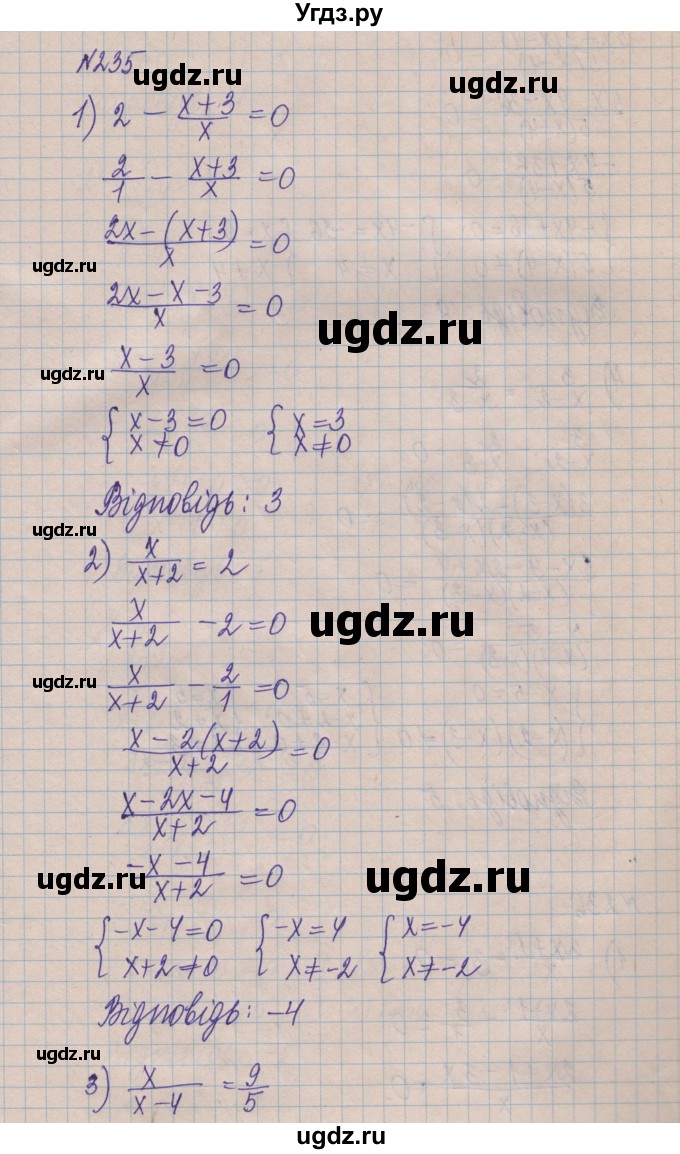 Угдз.ру
№235
ugdz.ru ugdz.ru
1) 2 - (x+3)/x = 0
2/1 - (x+3)/x = 0
(2x-(x+3))/x = 0
ugdz.ru
(2x-x-3)/x = 0
ugdz.ru
(x-3)/x = 0
ugdz.ru
{x-3=0 {x=3
x≠0 x≠0
Відповідь: 3
ugdz.ru
2) x/(x+2) = 2
x/(x+2) - 2 = 0
ugdz.ru
x/(x+2) - 2/1 = 0
ugdz.ru
(x-2(x+2))/(x+2) = 0
(x-2x-4)/(x+2) = 0
(-x-4)/(x+2) = 0
ugdz.ru ugdz.ru
{-x-4=0 {-x=4 {x=-4
x+2≠0 x≠-2 x≠-2
Відповідь: -4
ugdz.ru
3) x/(x-4) = 9/5
ugdz.ru